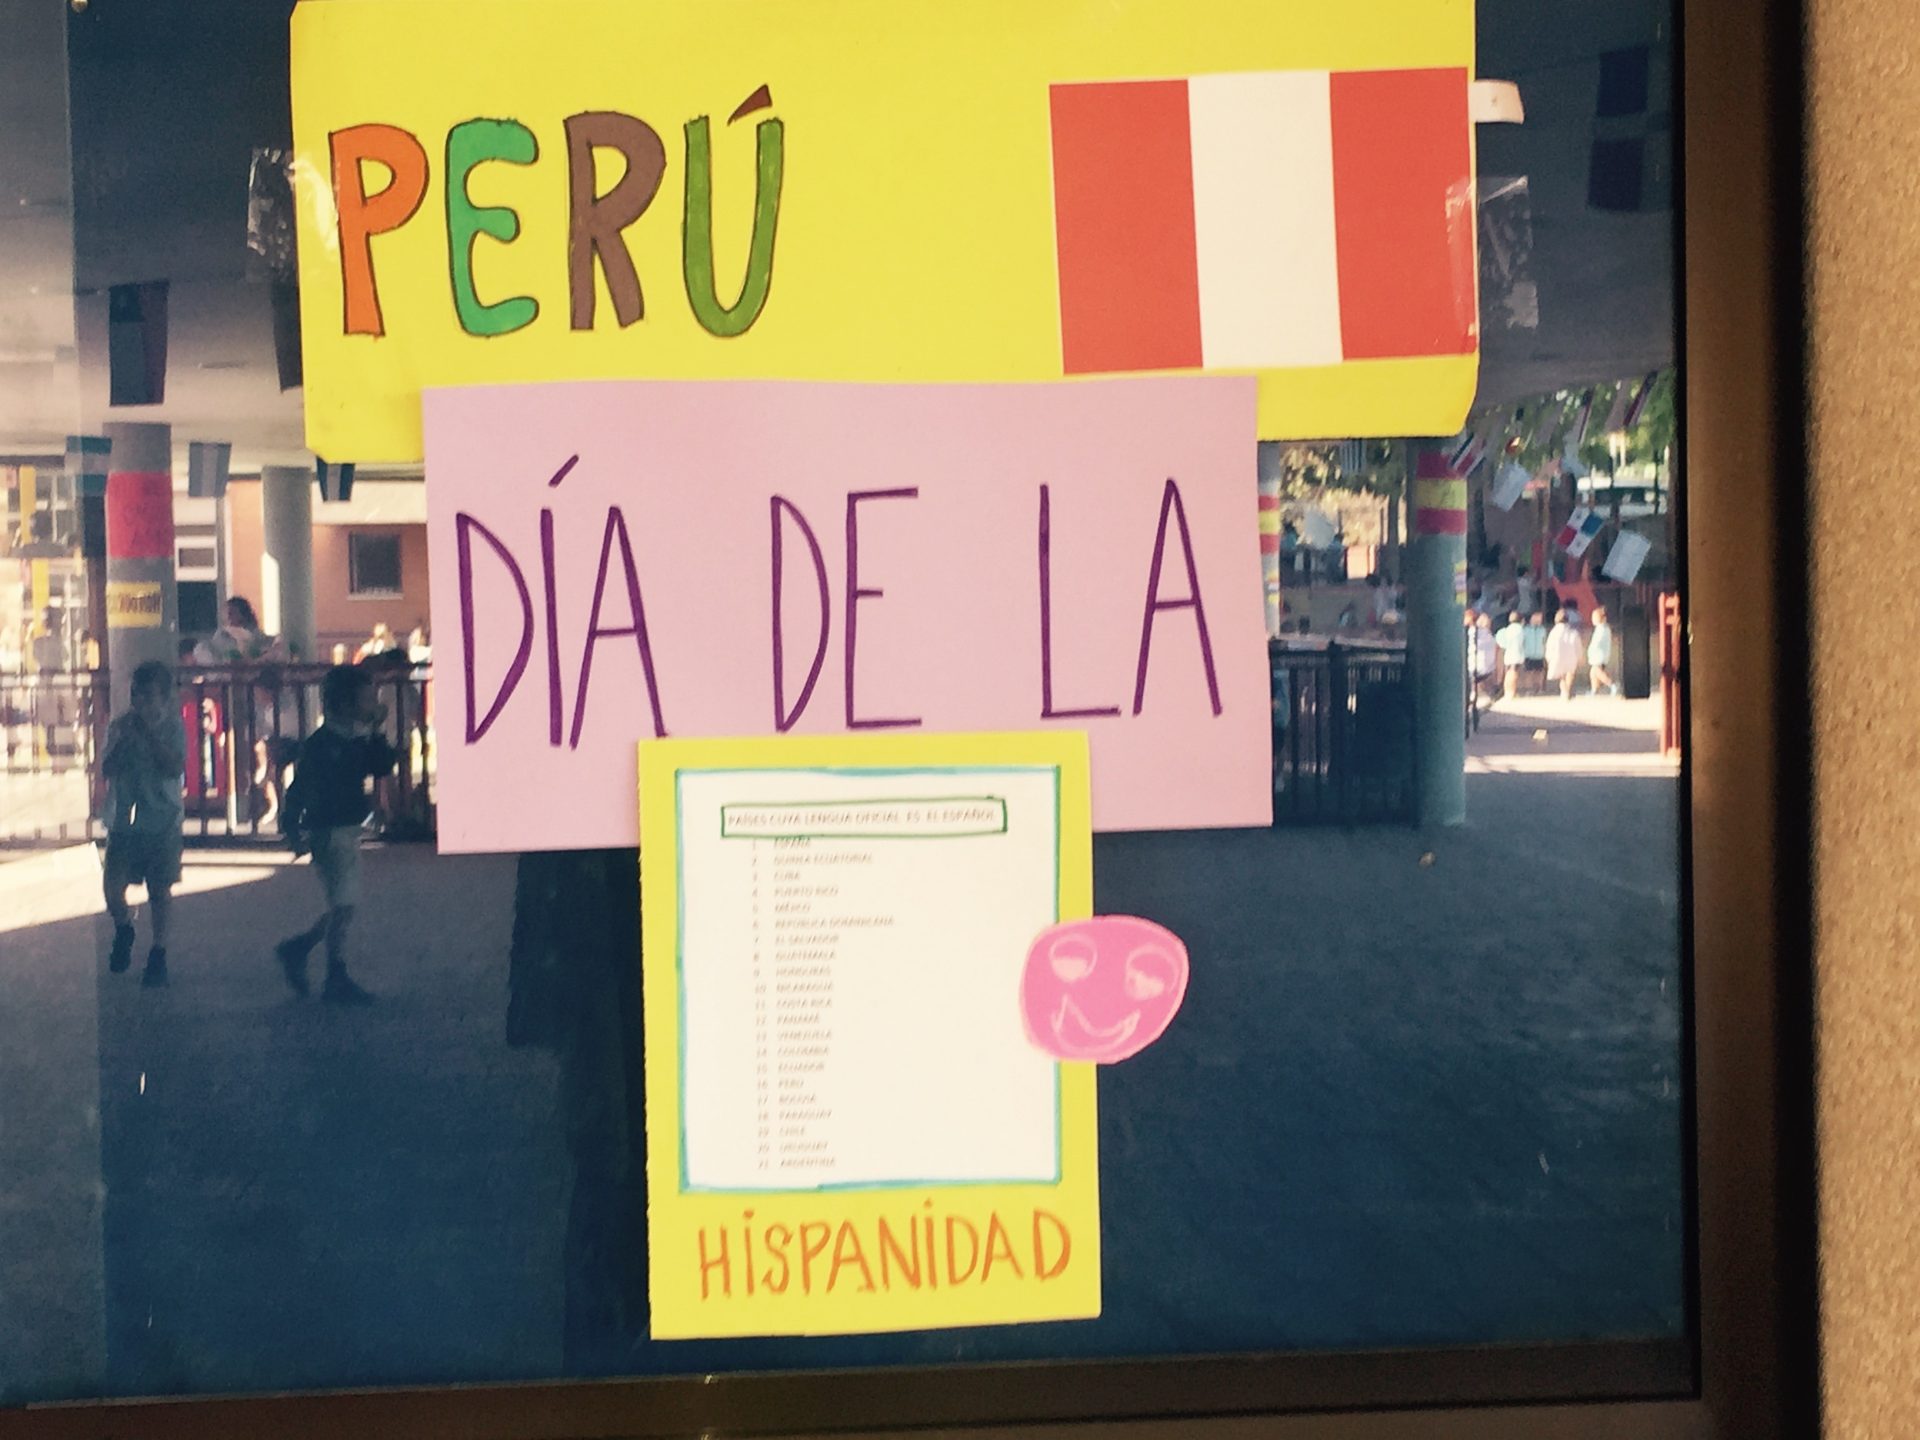 PERÚ
DÍA DE LA
PAÍSES CUYA LENGUA OFICIAL ES EL ESPAÑOL
1 ESPAÑA
2 GUINEA ECUATORIAL
3 CUBA
4 PUERTO RICO
5 MÉXICO
6 REPÚBLICA DOMINICANA
7 EL SALVADOR
8 GUATEMALA
9 HONDURAS
10 NICARAGUA
11 COSTA RICA
12 PANAMÁ
13 VENEZUELA
14 COLOMBIA
15 ECUADOR
16 PERÚ
17
18 PARAGUAY
19 CHILE
20 URUGUAY
21 ARGENTINA
HiSPANiDAD